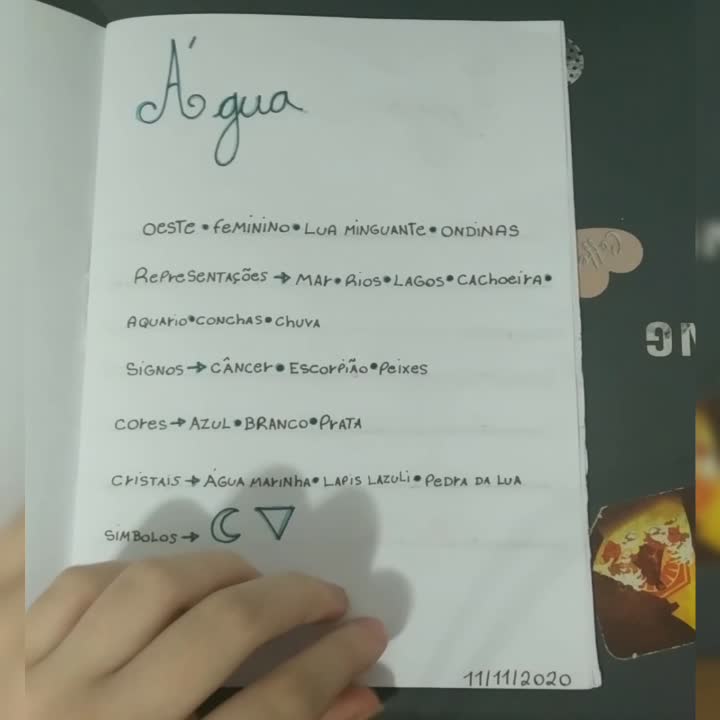 Água
OESTE • FEMININO • LUA MINGUANTE • ONDINAS
REPRESENTAÇÕES → MAR • RIOS • LAGOS • CACHOEIRA •
AQUARIO • CONCHAS • CHUVA
SIGNOS → CÂNCER • ESCORPIÃO • PEIXES
CORES → AZUL • BRANCO • PRATA
CRISTAIS → ÁGUA MARINHA • LAPIS LAZULI • PEDRA DA LUA
SIMBOLOS →
11/11/2020